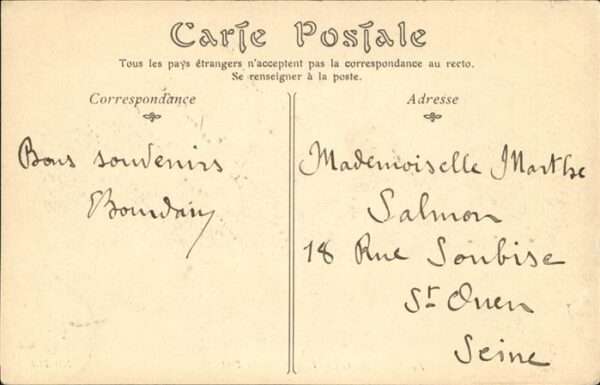 Carte Postale
Tous les pays étrangers n'acceptent pas la correspondance au recto.
Se renseigner à la poste.
Correspondance
Adresse
Bons souvenirs
Bourdain
Mademoiselle Marthe
Salmon
18 Rue Soubise
St Ouen
Seine